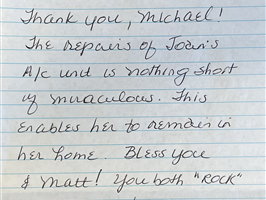 Thank you, Michael!
The repairs of Joan's
A/c unit is nothing short
of miraculous. This
enables her to remain in
her home. Bless you
& Matt! You both "ROCK"